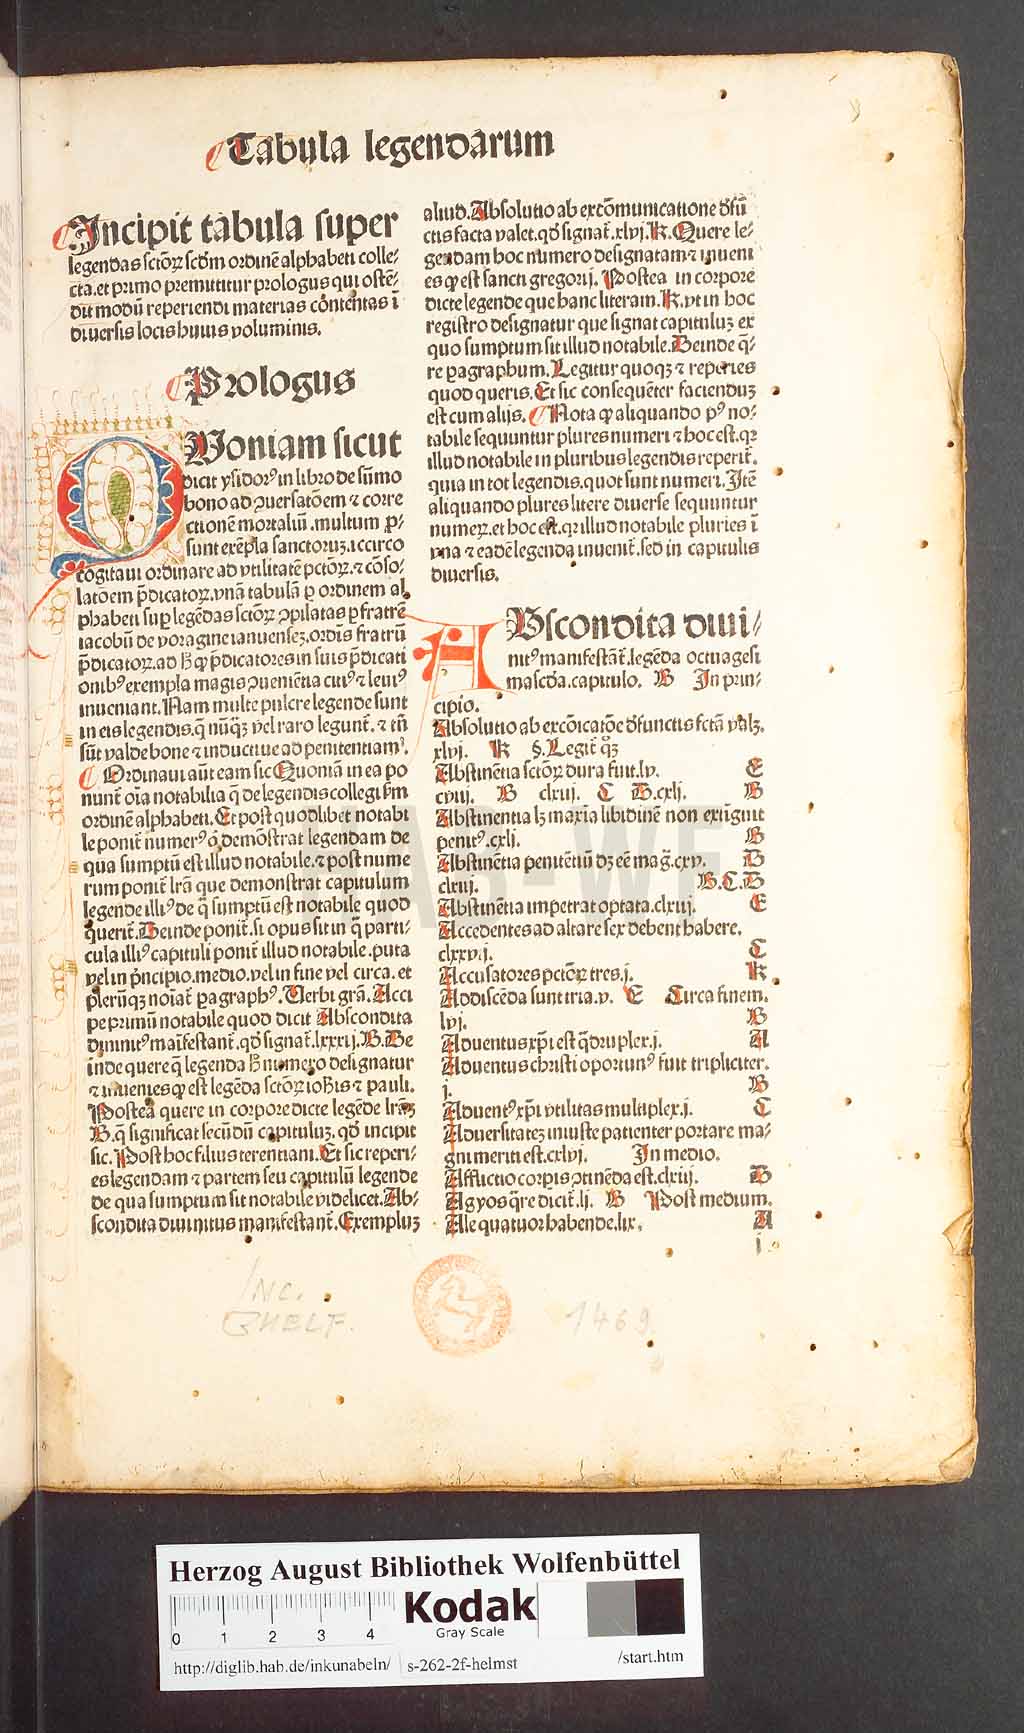 Tabula legendarum
Incipit tabula super
legendas sctõꝝ scd̃m ordinẽ alphabeti colle-
cta.et primo premittitur prologus qui ostẽ-
dit modũ reperiendi materias cõtentas ĩ
diuersis locis huius voluminis.
Prologus
QUoniam sicut
dicit ysidorꝰ in libro de sũmo
bono ad ꝯuersatõem ⁊ corre
ctionẽ mortaliũ.multum ꝓ-
sunt exẽpla sanctoruꝫ.iccirco
cogitaui ordinare ad vtilitatẽ pctõꝝ.⁊ cõso-
latõem p̃dicatoꝝ.vnã tabulã ꝑ ordinem al
phabeti suꝑ legẽdas sctõꝝ ꝯpilatas ꝑ fratrẽ
iacobũ de voragine ianuenseꝫ.ordĩs fratrũ
p̃dicatoꝝ.ad h̃ ꝙ p̃dicatores in suis p̃dicati
onibꝰ exempla magis ꝯueniẽtia citiꝰ ⁊ leuiꝰ
inueniant.Nam multe pulcre legende sunt
in eis legendis.q̃ nũq̃ꝫ vel raro legunt̃.⁊ tñ
sũt valde bone ⁊ inductiue ad penitentiam.
Ordinaui aũt eam sic Quoniã in ea po
nunt̃ oĩa notabilia q̃ de legendis collegi scd̃m
ordinẽ alphabeti.Et post quodlibet notabi
le ponit̃ numerꝰ q̃ demõstrat legendam de
qua sumptũ est illud notabile.⁊ post nume
rum ponit̃ lr̃a que demonstrat capitulum
legende illiꝰ de q̃ sumptũ est notabile quod
querit̃.Deinde ponit̃.si opus sit in q̃ parti-
cula illiꝰ capituli ponit̃ illud notabile.puta
vel in p̃ncipio.medio.vel in fine vel circa.et
pleruñqꝫ noĩat̃ ꝑagraphꝰ.Uerbi grã.Acci
pe primũ notabile quod dicit Abscondita
diuinitꝰ maĩfestant̃.qd̃ signat̃.lxxxij.B.De
inde quere q̃ legenda h̃ numero designatur
⁊ inuenies ꝙ est legẽda sctõꝝ ioh̃is ⁊ pauli.
Postea quere in corpore dicte legẽde lr̃aꝫ
B.q̃ significat secũdũ capituluꝫ.qd̃ incipit
sic.Post hoc filius terentiani.Et sic reperi-
es legendam ⁊ partem seu capitulũ legende
de qua sumptum sit notabile videlicet.Ab-
scondita diuinitus manifestant̃.Exempluꝫ
aliud.Absolutio ab excõmunicatione d̃fũ
ctis facta valet.qd̃ signat̃.xlvj.K.Quere le-
gendam hoc numero designatam ⁊ inueni
es ꝙ est sancti gregorij.Postea in corpore
dicte legende que hanc literam.K.vt in hoc
registro designatur que signat capituluꝫ ex
quo sumptum sit illud notabile.Deinde q̃-
re ꝑagraphum.Legitur quoqꝫ ⁊ reperies
quod queris.Et sic consequẽter faciendũꝫ
est cum alijs.Nota ꝙ aliquando pꝰ no-
tabile sequuntur plures numeri ⁊ hoc est.qꝛ
illud notabile in pluribus legendis reperit̃.
quia in tot legendis.quot sunt numeri.Itẽ
aliquando plures litere diuerse sequuntur
numeꝝ.et hoc est.qꝛ illud notabile pluries ĩ
vna ⁊ eadẽ legenda inuenit̃.sed in capitulis
diuersis.
ABscondita diui-
nitꝰ manifestãt̃.legẽda octuagesi
mascd̃a.capitulo. B In prin-
cipio.
Absolutio ab excõicatõe d̃functis fctã valꝫ.
xlvj. K §.Legit̃ qꝫ
Abstinẽtia sctõꝝ dura fuit.lv. E
cviij. B clxij. C D.cxlj. B
Abstinentia lꝫ maxĩa libidinẽ non extĩguit
penitꝰ.cxlj. B
Abstinẽtia penitẽtiũ dꝫ eẽ mag̃.cxv. D
clxij. B.C.D
Abstinẽtia impetrat optata.clxij. E
Accedentes ad altare sex debent habere.
clxxvij. C
Accusatores pctõꝝ tres.j. K
Addiscẽda sunt tria.v. E Circa finem.
lvj. B
Aduentus xp̃i est q̃druplex.j. A
Aduentus christi oportunꝰ fuit tripliciter.
j. B
Aduentꝰ xp̃i vtilitas multiplex.j. C
Aduersitateꝫ iniuste patienter portare ma-
gni meriti est.cxlvj. In medio.
Afflictio corpĩs ꝯtinẽda est.clxiij. D
Agyos q̃re dicit̃.lj. B Post medium.
Alle quatuor habende.lix. A
j
INC.
GUELF.
1469
HAB-WF
Herzog August Bibliothek Wolfenbüttel
0 1 2 3 4
Kodak
Gray Scale
http://diglib.hab.de/inkunabeln/ s-262-2f-helmst /start.htm